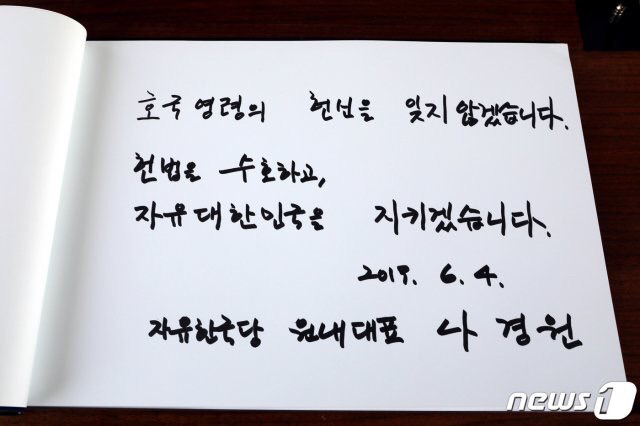 호국영령의 헌신을 잊지 않겠습니다.
헌법을 수호하고,
자유대한민국을 지키겠습니다.
2019. 6. 4.
자유한국당 원내대표 나경원
news1